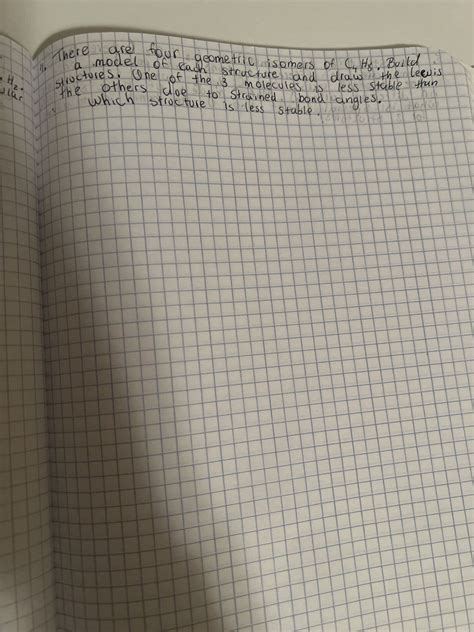 There are four geometric isomers of C4H8. Build
a model of each structure and draw the lewis
structures. One of the 3 molecules is less stable than
the others due to strained bond angles.
which structure is less stable.